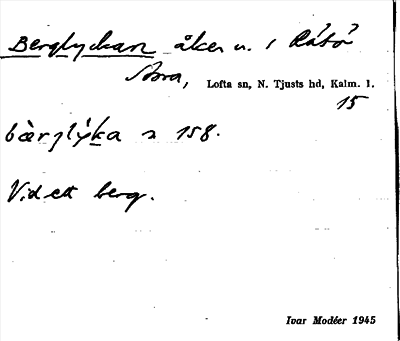 Berglyckan åker u. i Råsö
Stora, Lofta sn, N. Tjusts hd, Kalm. l.
15
bàrglýka 2 158.
Vid ett berg.
Ivar Modéer 1945